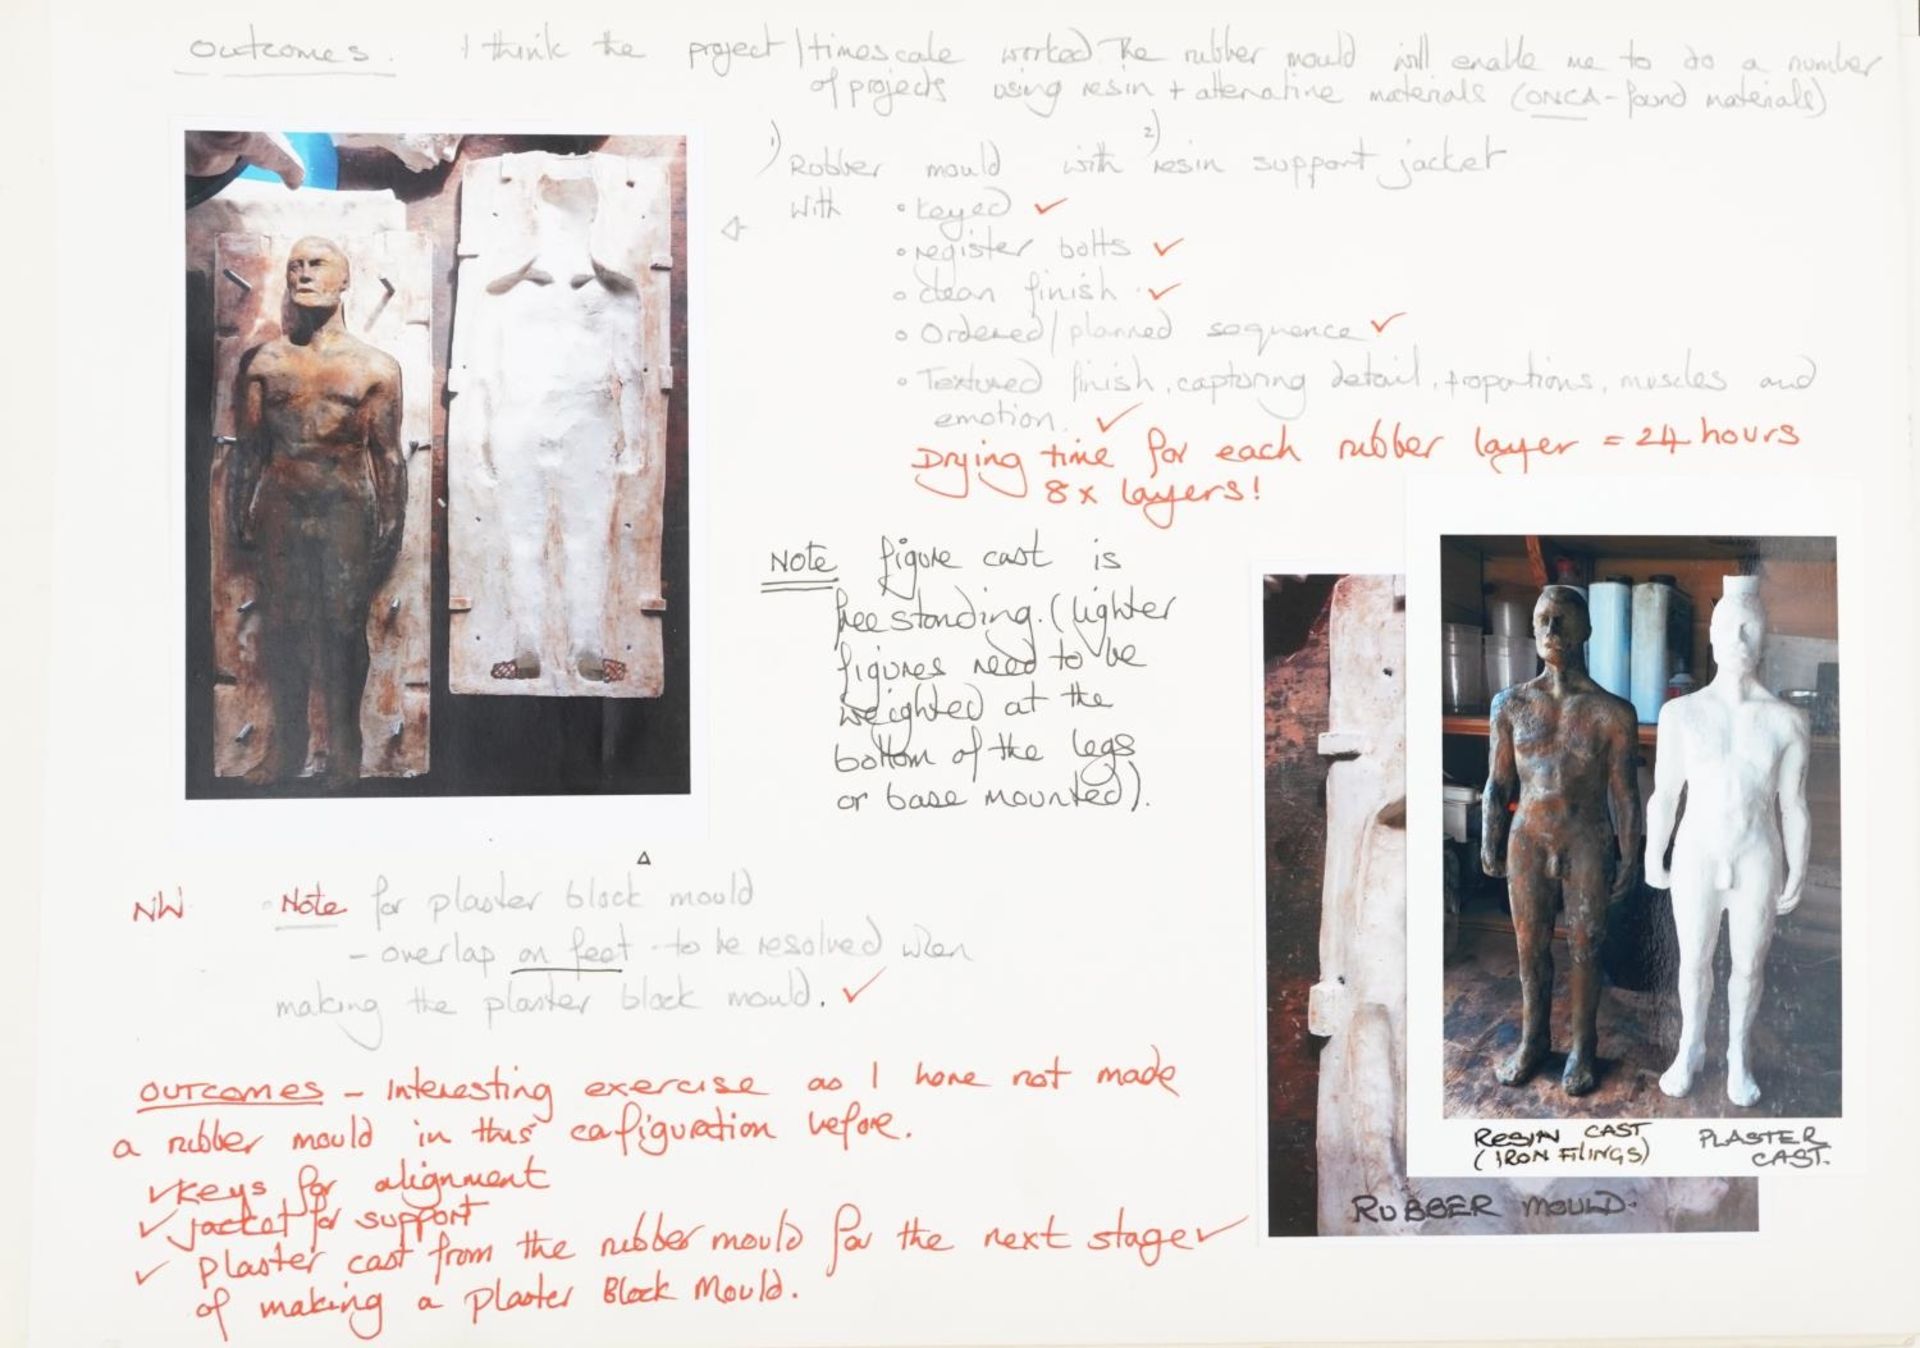 Outcomes. I think the project/timescale worked The rubber mould will enable me to do a number
of projects using resin + alternative materials (ONCA - found materials)
1) Rubber mould with 2) resin support jacket
With • keyed ✓
• register bolts ✓
• clean finish ✓
• Ordered/planned sequence ✓
• Textured finish, capturing detail, proportions, muscles and
emotion. ✓
Drying time for each rubber layer = 24 hours
8x layers!
Note figure cast is
free standing. (lighter
figures need to be
weighted at the
bottom of the legs
or base mounted).
NW • Note for plaster block mould
- overlap on feet - to be resolved when
making the plaster block mould. ✓
OUTCOMES - Interesting exercise as I have not made
a rubber mould in this configuration before.
✓ Keys for alignment
✓ jacket for support
✓ plaster cast from the rubber mould for the next stage ✓
of making a plaster Block Mould.
RESIN CAST
(IRON FILINGS)
PLASTER
CAST.
RUBBER MOULD.